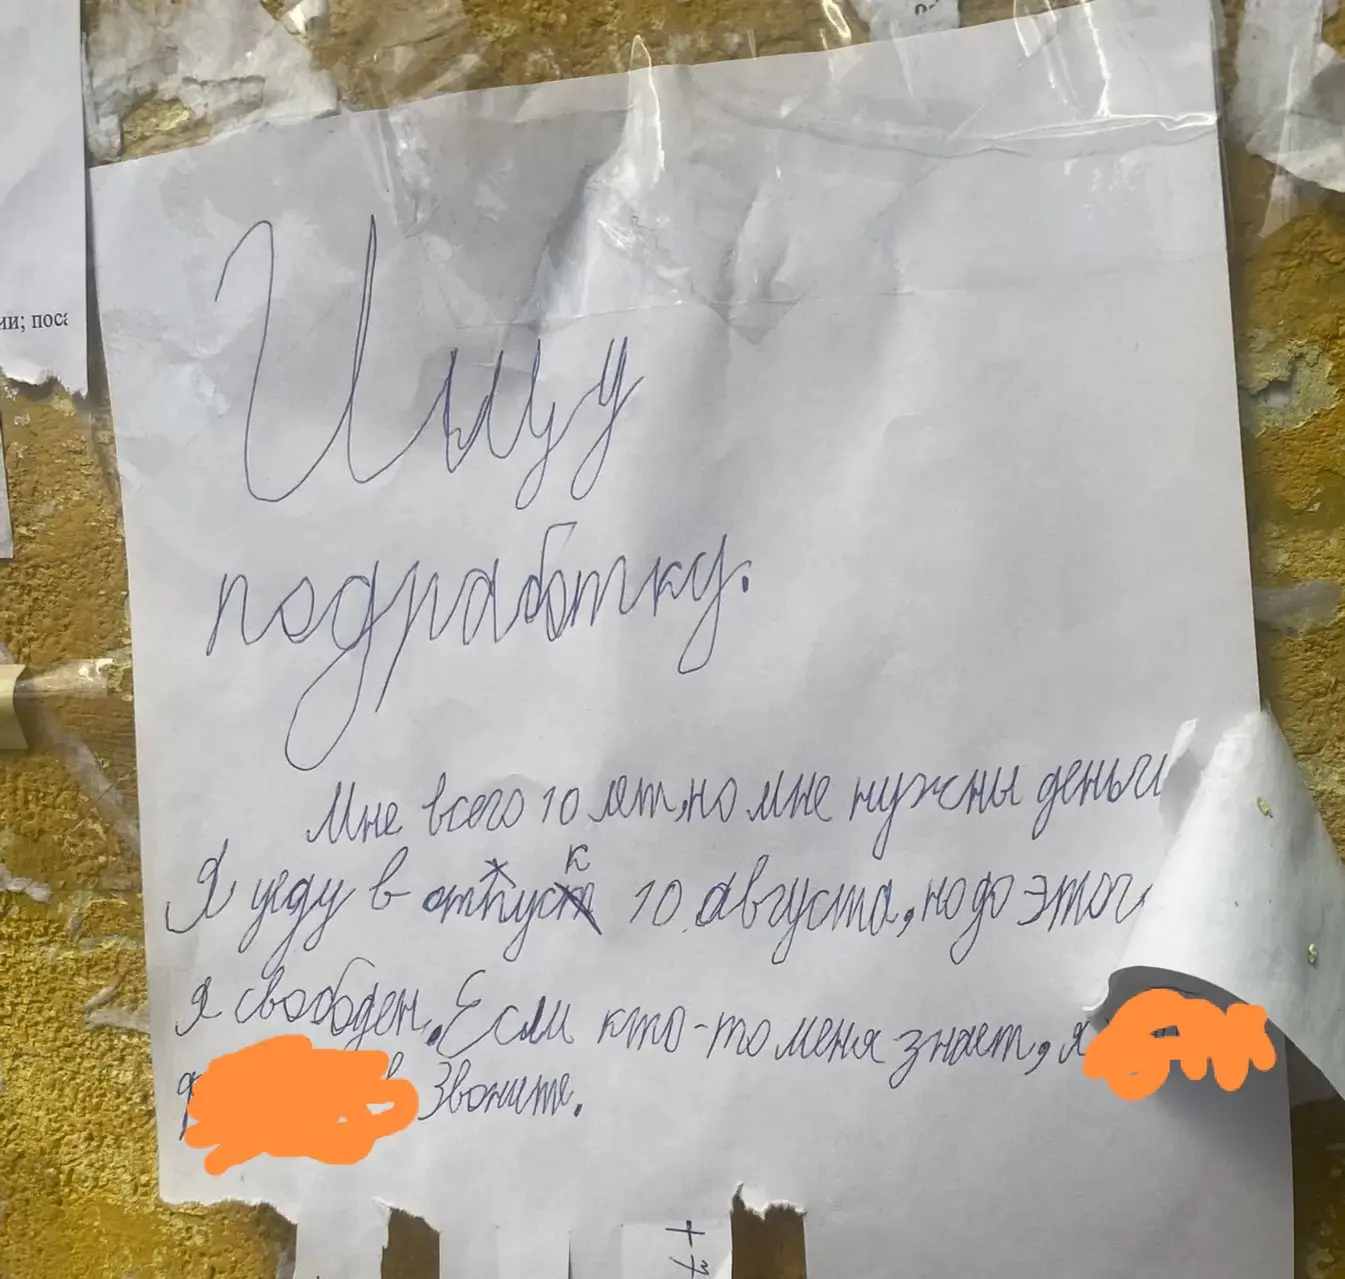 ии; поса
Ищу
подработку.
Мне всего 10 лет, но мне нужны деньги
Я уеду в отпуск 10 августа, но до этого
я свободен. Если кто-то меня знает, я
Звоните.
+7